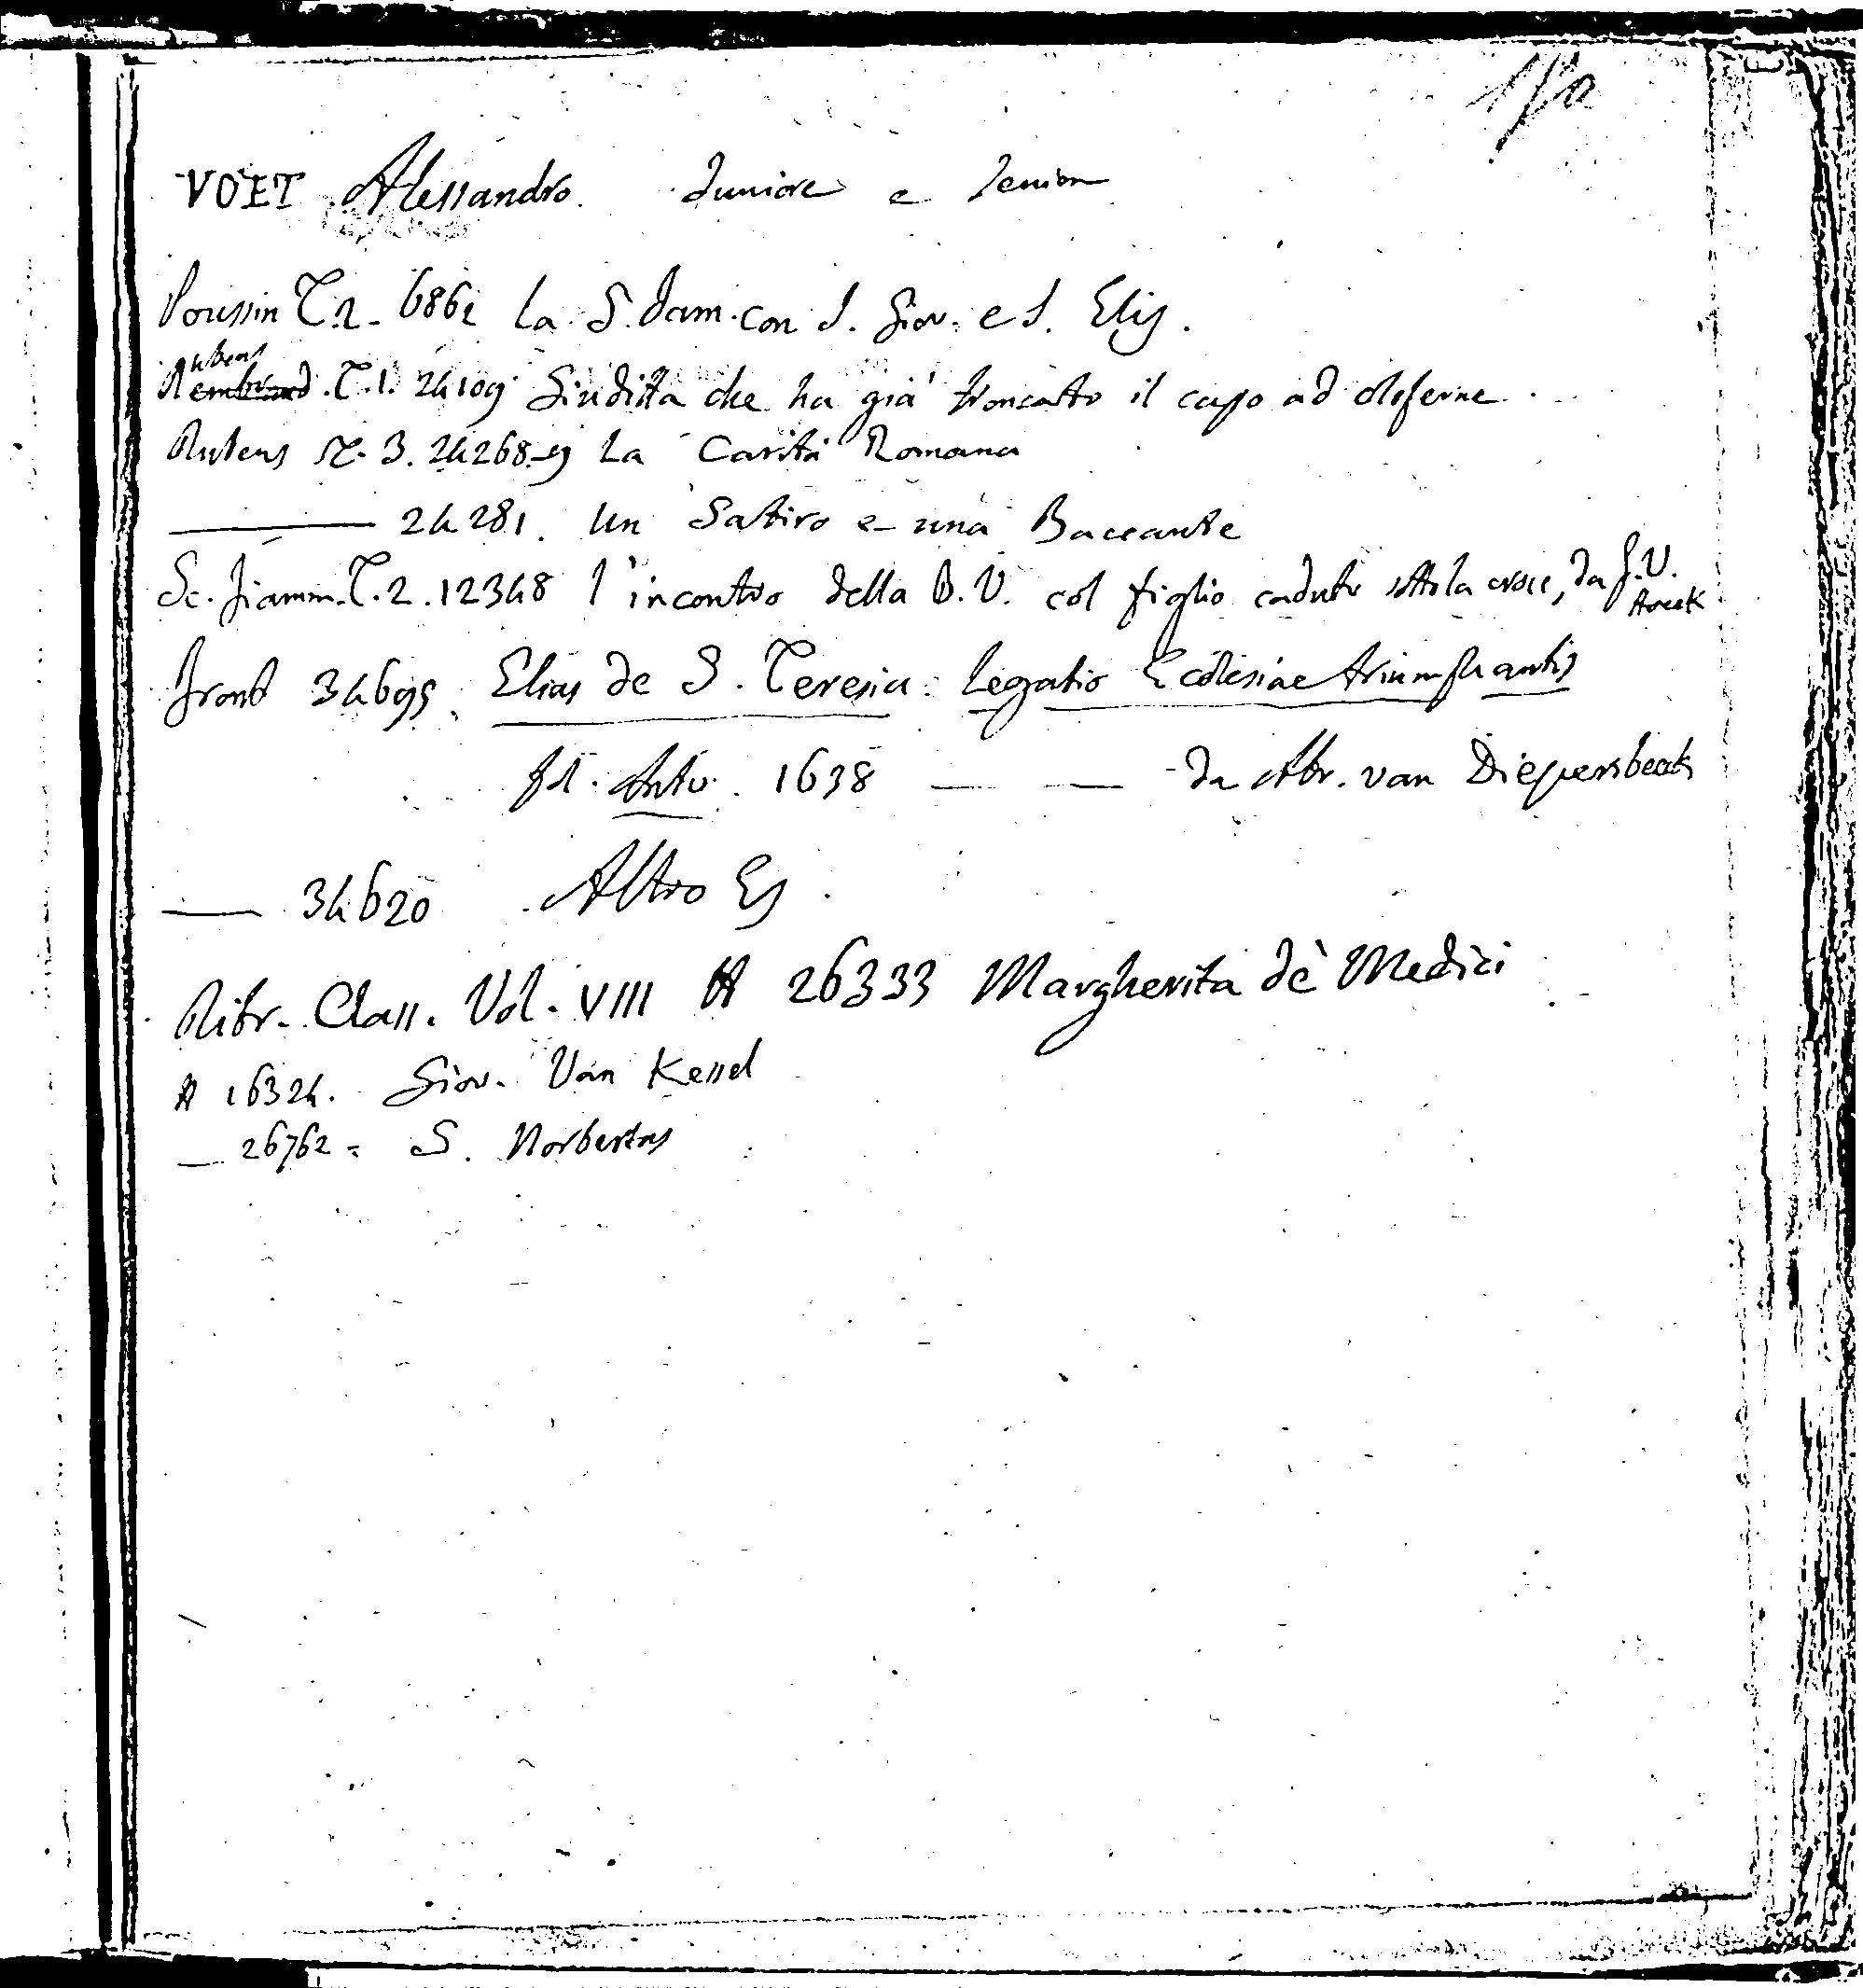 VOET Alessandro. Juniore e Senior
Poussin T.2. 6862 La S. Fam. con S. Giov. e S. Elis.
Rubens
Rembrand. T.1. 24109 Giuditta che ha già troncatto il capo ad Oloferne.
Rubens T. 3. 24268-9 La Carità Romana
——— 24281. Un Satiro e una Baccante
Sc. fiamm. T.2. 12348 l'incontro della B.V. col figlio caduto sotto la croce, da G.V.
Front 34695. Elias de S. Teresia: Legatio Ecclesiae triumphantis
fol. Antv. 1638 — — da Abr. van Diepenbeek
— 34620 Altro Es.
Ritr. Class. Vol. VIII A 26333 Margherita dè Medici
A 16324. Giov. Van Kessel
— 26762 = S. Norbertus